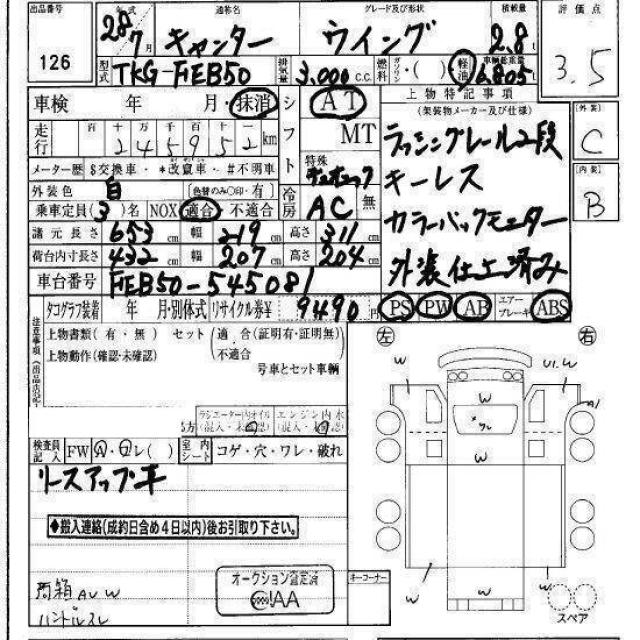 出品番号
126
年式 28 7月
通称名 キャンター
グレード及び形状 ウイング
積載量 2.8t
評価点 3.5
型式 TKG-FEB50
排気量 3,000 c.c.
燃料 ガソリン・( ) 軽油
車輌総重量 6,805t
車検 年 月・抹消
走行 百十万千百十一
245952km
シフト AT MT
特殊 デュオニック
メーター歴 $交換車・*改竄車・#不明車
外装色 白
(色替のみ○印・有)
冷房 AC 無
乗車定員(3)名 NOX 適合 不適合
諸元長さ 653cm 幅 219cm 高さ 311cm
荷台内寸長さ 432cm 幅 207cm 高さ 204cm
車台番号 FEB50-545081
上物特記事項
(架装物メーカー及び仕様)
ラッシングレール2段
キーレス
カラーバックモニター
外装仕上済み
[外装]
C
[内装]
B
タコグラフ装着 年 月・別体式 リサイクル券¥ 9490円
PS PW AB エアーブレーキ ABS
注意事項
上物書類(有・無) セット(適合(証明有・証明無)
不適合
上物動作(確認・未確認)
号車とセット車輌
ラジエーター内オイル
エンジン内水
検査員記入 FW(A・ )
室内シート コゲ・穴・ワレ・破れ
リースアップ車
◆搬入連絡(成約日含め4日以内)後お引取り下さい。
荷箱AUW
ハンドルスレ
オークション査定済
CIAA
キーコーナー
左
右
W
U1.W
A1
W
W
W
W
W
W
スペア